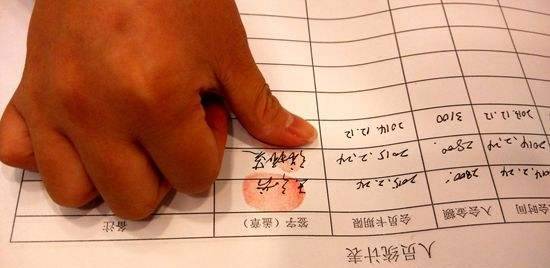 人员统计表
会时间 入会金额 会员卡期限 签字（盖章） 备注
014.2.24 2800. 2015.2.24
2014.2.24 2800. 2015.2.24
2013.12.12 3100 2014.12.12